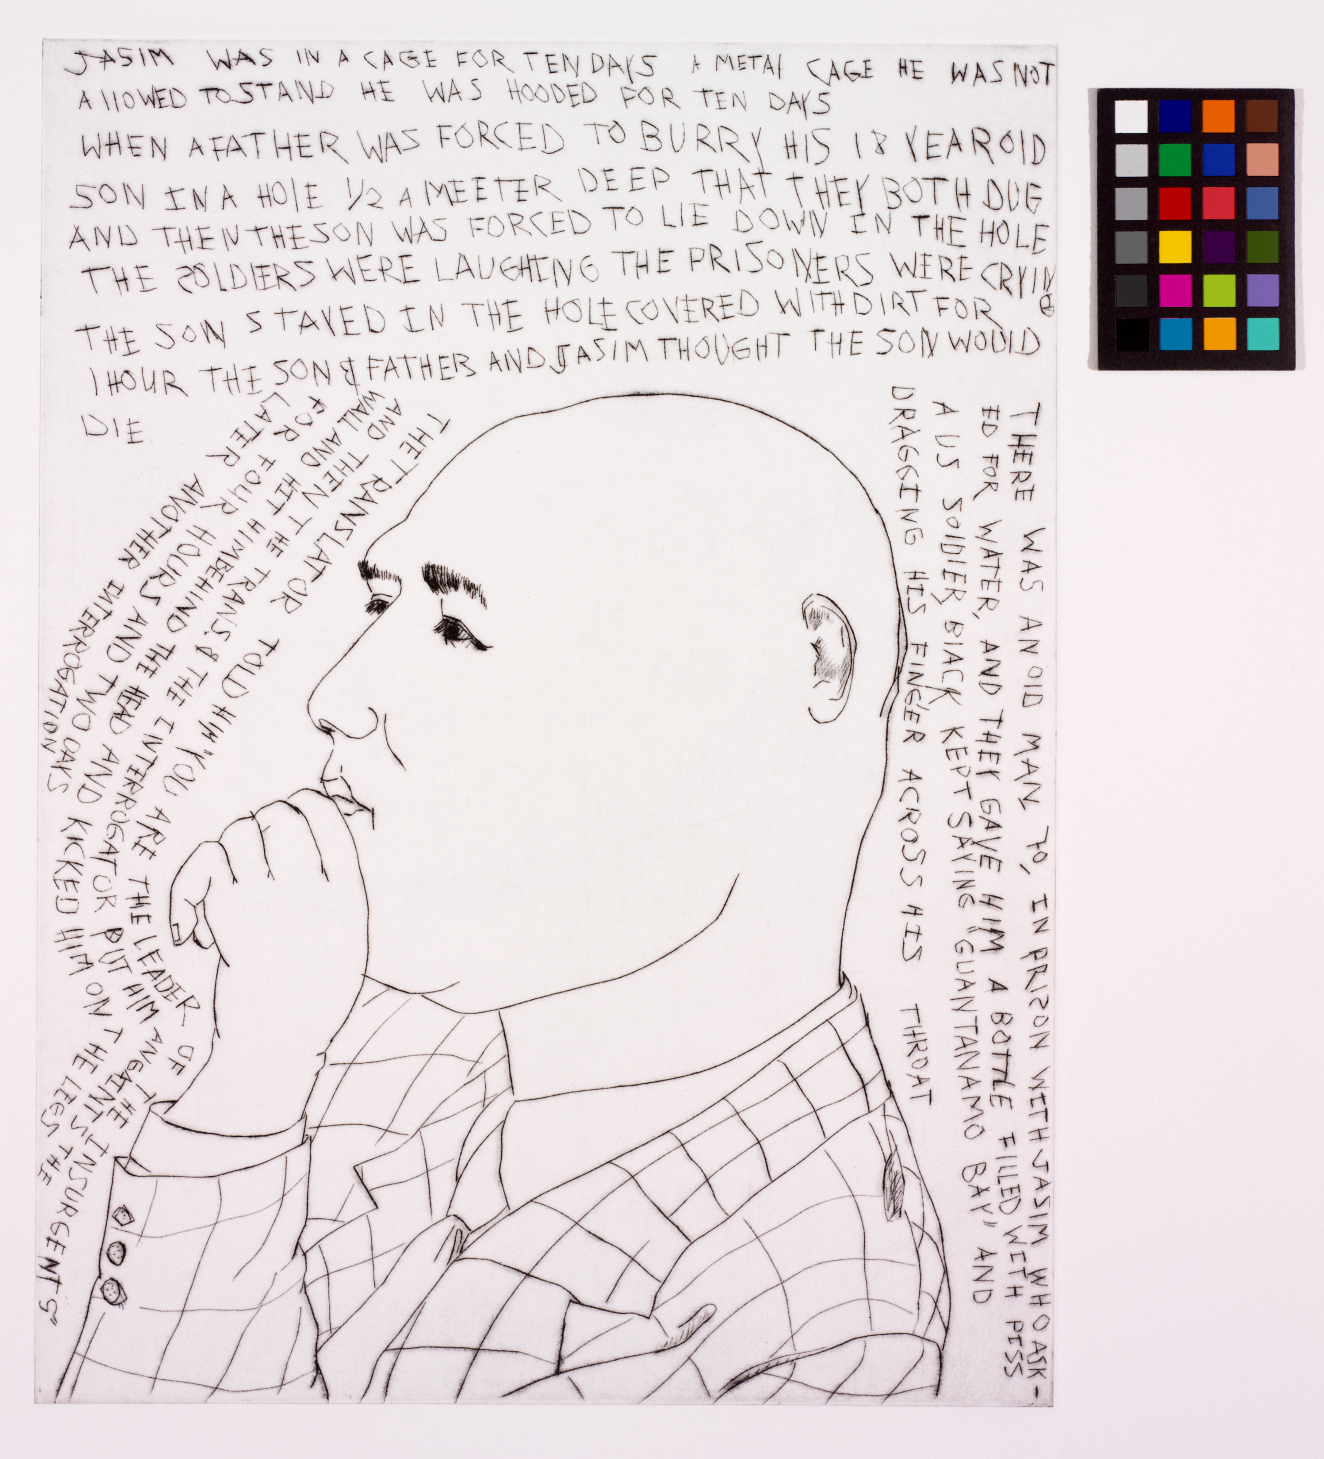 JASIM WAS IN A CAGE FOR TEN DAYS A METAl CAGE HE WAS NOT
AllOWED TO STAND HE WAS HOODED FOR TEN DAYS
WHEN A FATHER WAS FORCED TO BURRY HIS 18 YEAR OlD
SON IN A HOlE 1/2 A MEETER DEEP THAT THEY BOTH DUG
AND THEN THE SON WAS FORCED TO LIE DOWN IN THE HOLE
THE SOLDIERS WERE LAUGHING THE PRISONERS WERE CRYING
THE SON STAYED IN THE HOLE COVERED WITH DIRT FOR
1 HOUR THE SON & FATHER AND JASIM THOUGHT THE SON WOULD
DIE
THE TRANSLATOR TOLD HIM "YOU ARE THE LEADER OF
AND THEN THE TRANS. & THE INTERROGATOR PUT HIM AGAINT THE
WALL AND HIT HIM BEHIND THE HEAD AND
FOR FOUR HOURS AND TWO DAYS
LATER
ANOTHER INTERROGATION
KICKED HIM ON THE LEGS THE
INSURGENTS"
THERE WAS AN OlD MAN, 70, IN PRISON WITH JASIM WHO ASK-
ED FOR WATER, AND THEY GAVE HIM A BOTTLE FILLED WITH PISS
A US SOlDIER BlACK KEPT SAYING "GUANTANAMO BAY" AND
DRAGGING HIS FINGER ACROSS HIS THROAT